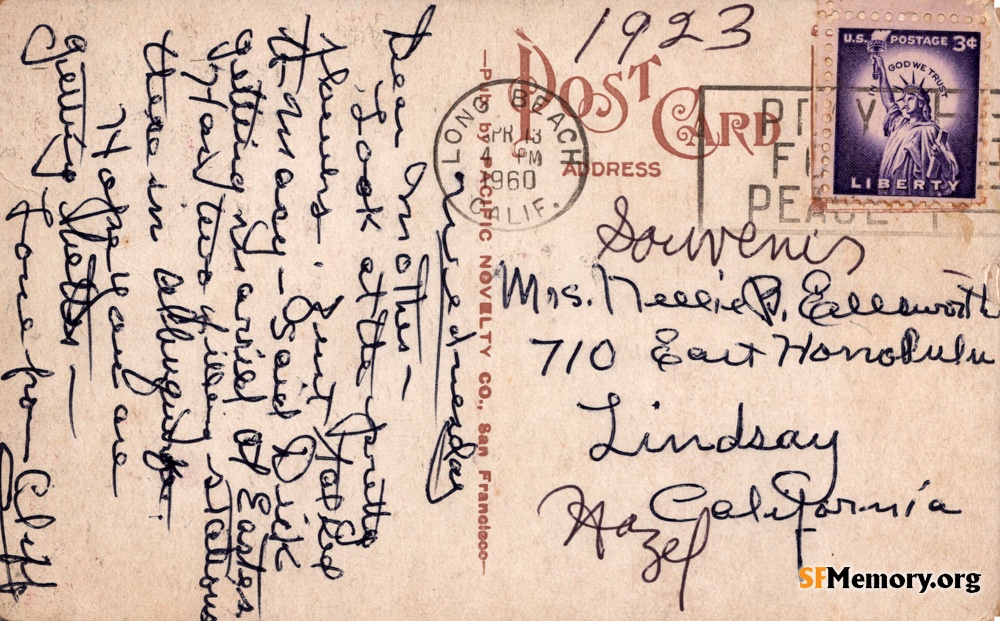 1923
POST CARD
ADDRESS
U.S. POSTAGE 3¢
IN GOD WE TRUST
LIBERTY
LONG BEACH
APR 13
4 PM
1960
CALIF.
PRAY
PEACE
Souvenir
Mrs. Nellie P. Ellsworth
710 East Honolulu
Lindsay
California
Hazel
—Pub. by PACIFIC NOVELTY CO., San Francisco—
Wednesday
Dear Mother—
Look at the pretty
flowers. Just
Mary— Said Dick
getting married at Easter
Has two filling stations
there in
Hope you are
getting better—
Love from— Cliff
SFMemory.org